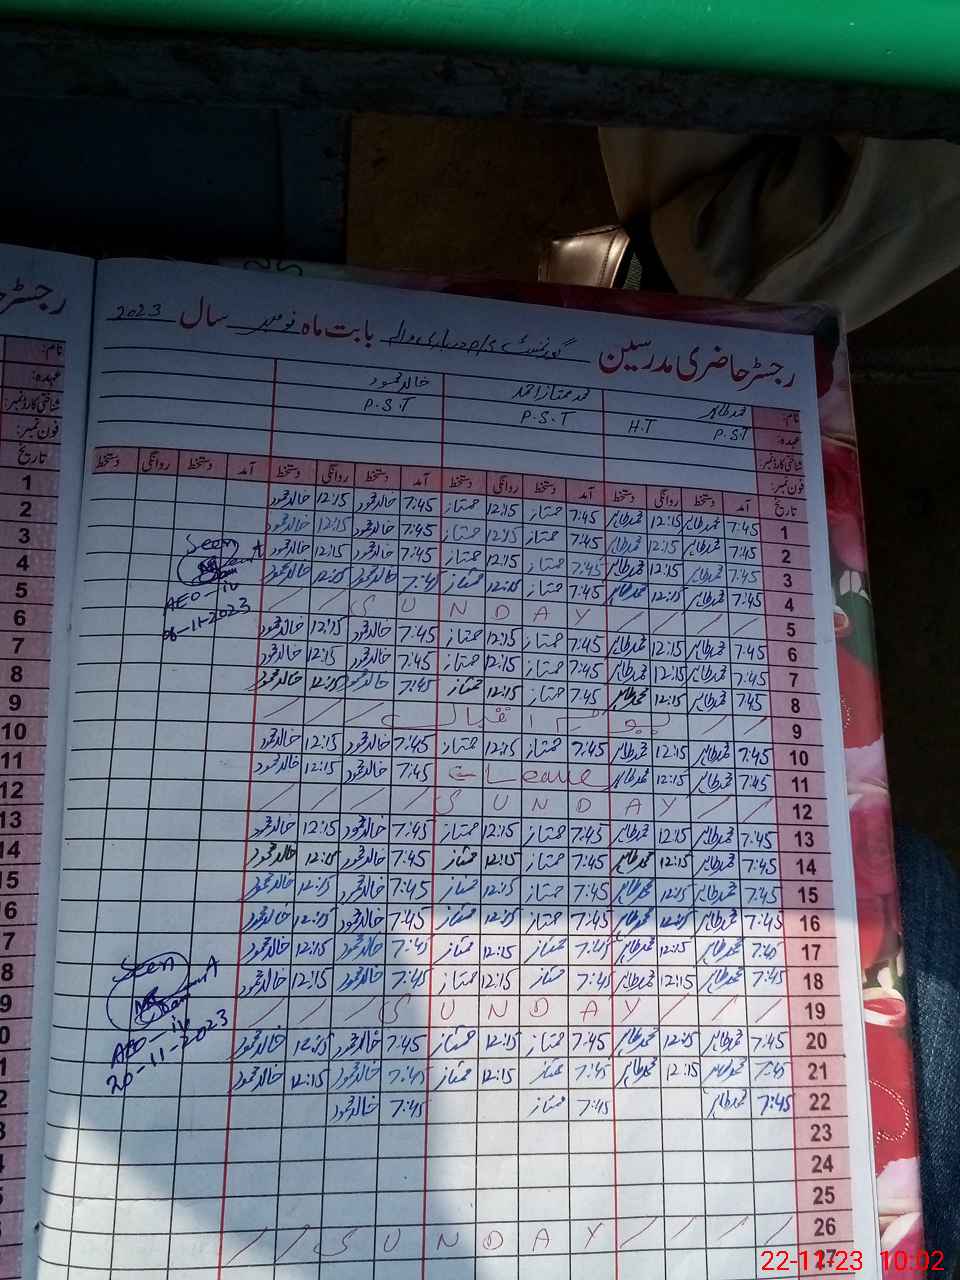 رجسٹر حاضری مدرسین گورنمنٹ بابت ماہ نومبر سال 2023
نام: محمد طاہر محمد ممتاز احمد خالد محمود
عہدہ: P.S.T H.T P.S.T P.S.T
شناختی کارڈ نمبر:
فون نمبر:
تاریخ آمد دستخط روانگی دستخط آمد دستخط روانگی دستخط آمد دستخط روانگی دستخط آمد دستخط روانگی دستخط
1 7:45 محمد طاہر 12:15 محمد طاہر 7:45 ممتاز 12:15 ممتاز 7:45 خالد محمود 12:15 خالد محمود
2 7:45 محمد طاہر 12:15 محمد طاہر 7:45 ممتاز 12:15 ممتاز 7:45 خالد محمود 12:15 خالد محمود
3 7:45 محمد طاہر 12:15 محمد طاہر 7:45 ممتاز 12:15 ممتاز 7:45 خالد محمود 12:15 خالد محمود
4 7:45 محمد طاہر 12:15 محمد طاہر 7:45 ممتاز 12:15 ممتاز 7:45 خالد محمود 12:15 خالد محمود
5 SUNDAY
6 7:45 محمد طاہر 12:15 محمد طاہر 7:45 ممتاز 12:15 ممتاز 7:45 خالد محمود 12:15 خالد محمود
7 7:45 محمد طاہر 12:15 محمد طاہر 7:45 ممتاز 12:15 ممتاز 7:45 خالد محمود 12:15 خالد محمود
8 7:45 محمد طاہر 12:15 محمد طاہر 7:45 ممتاز 12:15 ممتاز 7:45 خالد محمود 12:15 خالد محمود
9 یوم اقبال
10 7:45 محمد طاہر 12:15 محمد طاہر 7:45 ممتاز 12:15 ممتاز 7:45 خالد محمود 12:15 خالد محمود
11 7:45 محمد طاہر 12:15 محمد طاہر Leave 7:45 خالد محمود 12:15 خالد محمود
12 SUNDAY
13 7:45 محمد طاہر 12:15 محمد طاہر 7:45 ممتاز 12:15 ممتاز 7:45 خالد محمود 12:15 خالد محمود
14 7:45 محمد طاہر 12:15 محمد طاہر 7:45 ممتاز 12:15 ممتاز 7:45 خالد محمود 12:15 خالد محمود
15 7:45 محمد طاہر 12:15 محمد طاہر 7:45 ممتاز 12:15 ممتاز 7:45 خالد محمود 12:15 خالد محمود
16 7:45 محمد طاہر 12:15 محمد طاہر 7:45 ممتاز 12:15 ممتاز 7:45 خالد محمود 12:15 خالد محمود
17 7:45 محمد طاہر 12:15 محمد طاہر 7:45 ممتاز 12:15 ممتاز 7:45 خالد محمود 12:15 خالد محمود
18 7:45 محمد طاہر 12:15 محمد طاہر 7:45 ممتاز 12:15 ممتاز 7:45 خالد محمود 12:15 خالد محمود
19 SUNDAY
20 7:45 محمد طاہر 12:15 محمد طاہر 7:45 ممتاز 12:15 ممتاز 7:45 خالد محمود 12:15 خالد محمود
21 7:45 محمد طاہر 12:15 محمد طاہر 7:45 ممتاز 12:15 ممتاز 7:45 خالد محمود 12:15 خالد محمود
22 7:45 محمد طاہر 7:45 ممتاز 7:45 خالد محمود
23
24
25
26 SUNDAY
27
Seen
AEO-iv
06-11-2023
Seen
AEO-iv
20-11-2023
22-11-23 10:02